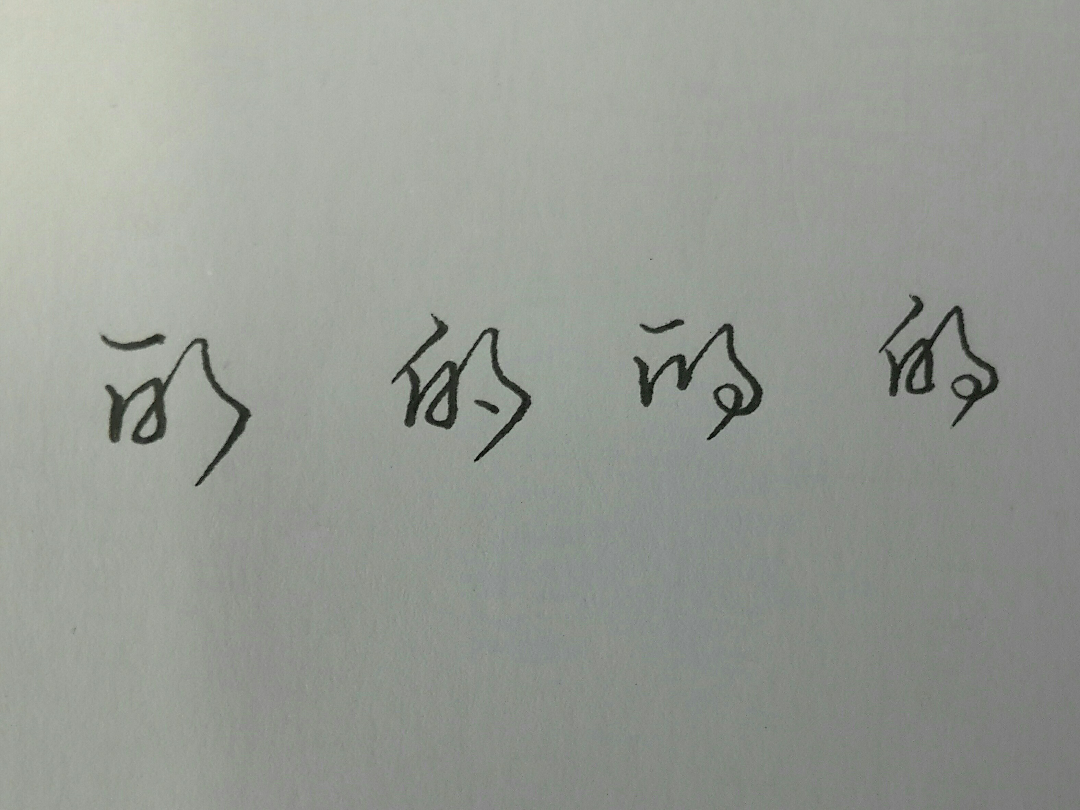 的 的 的 的